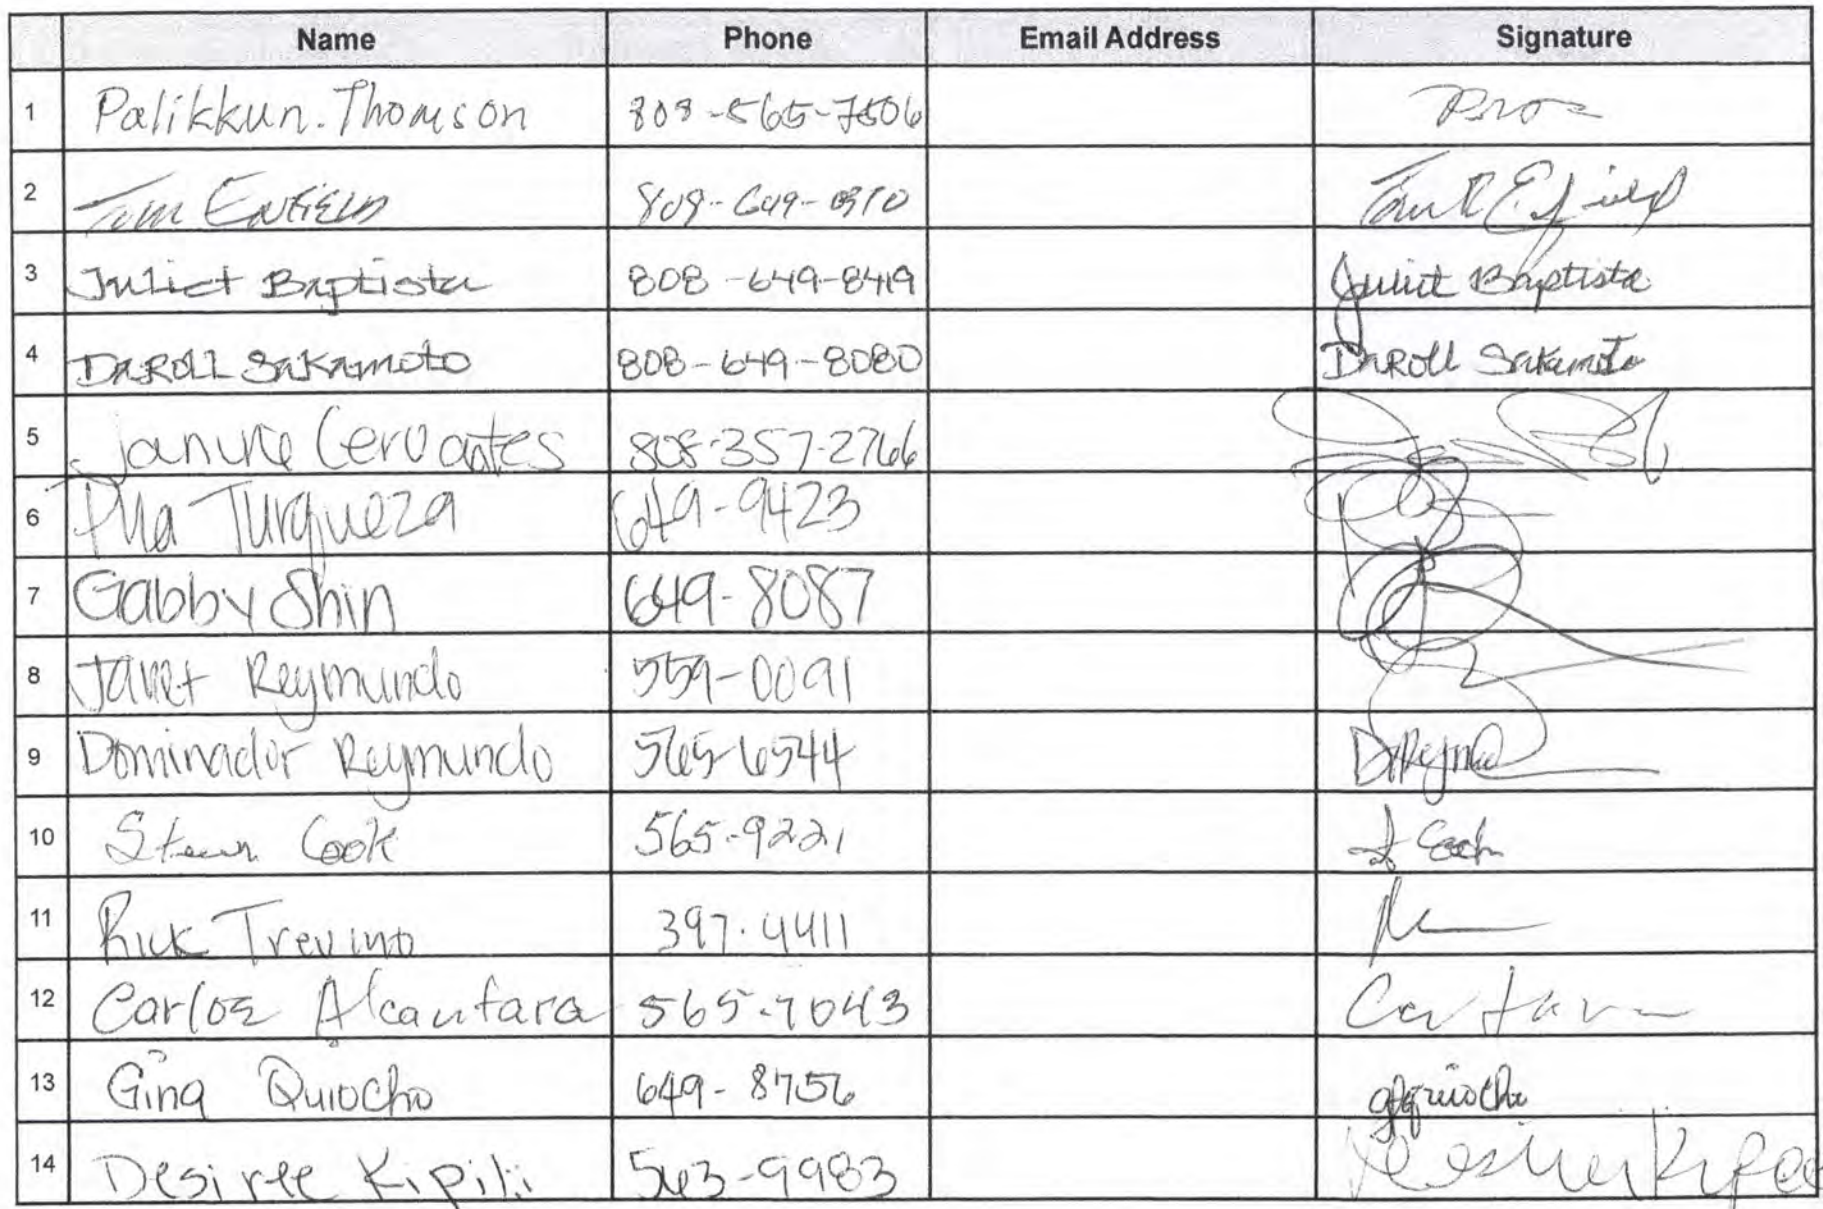 Name Phone Email Address Signature
1 Palikkun. Thomson 808-565-7506
2 Tom Enfield 808-649-0910
3 Juliet Baptista 808-649-8419 Juliet Baptista
4 DaRoll Sakamoto 808-649-8080 DaRoll Sakamoto
5 Janine Cervantes 808-357-2766
6 Pua Turqueza 649-9423
7 Gabby Shin 649-8087
8 Janet Reymundo 559-0091
9 Dominador Reymundo 565-6544
10 Steven Cook 565-9221
11 Rick Trevino 397-4411
12 Carlos Alcantara 565-7043
13 Gina Quiocho 649-8756
14 Desiree Kipili 563-9983